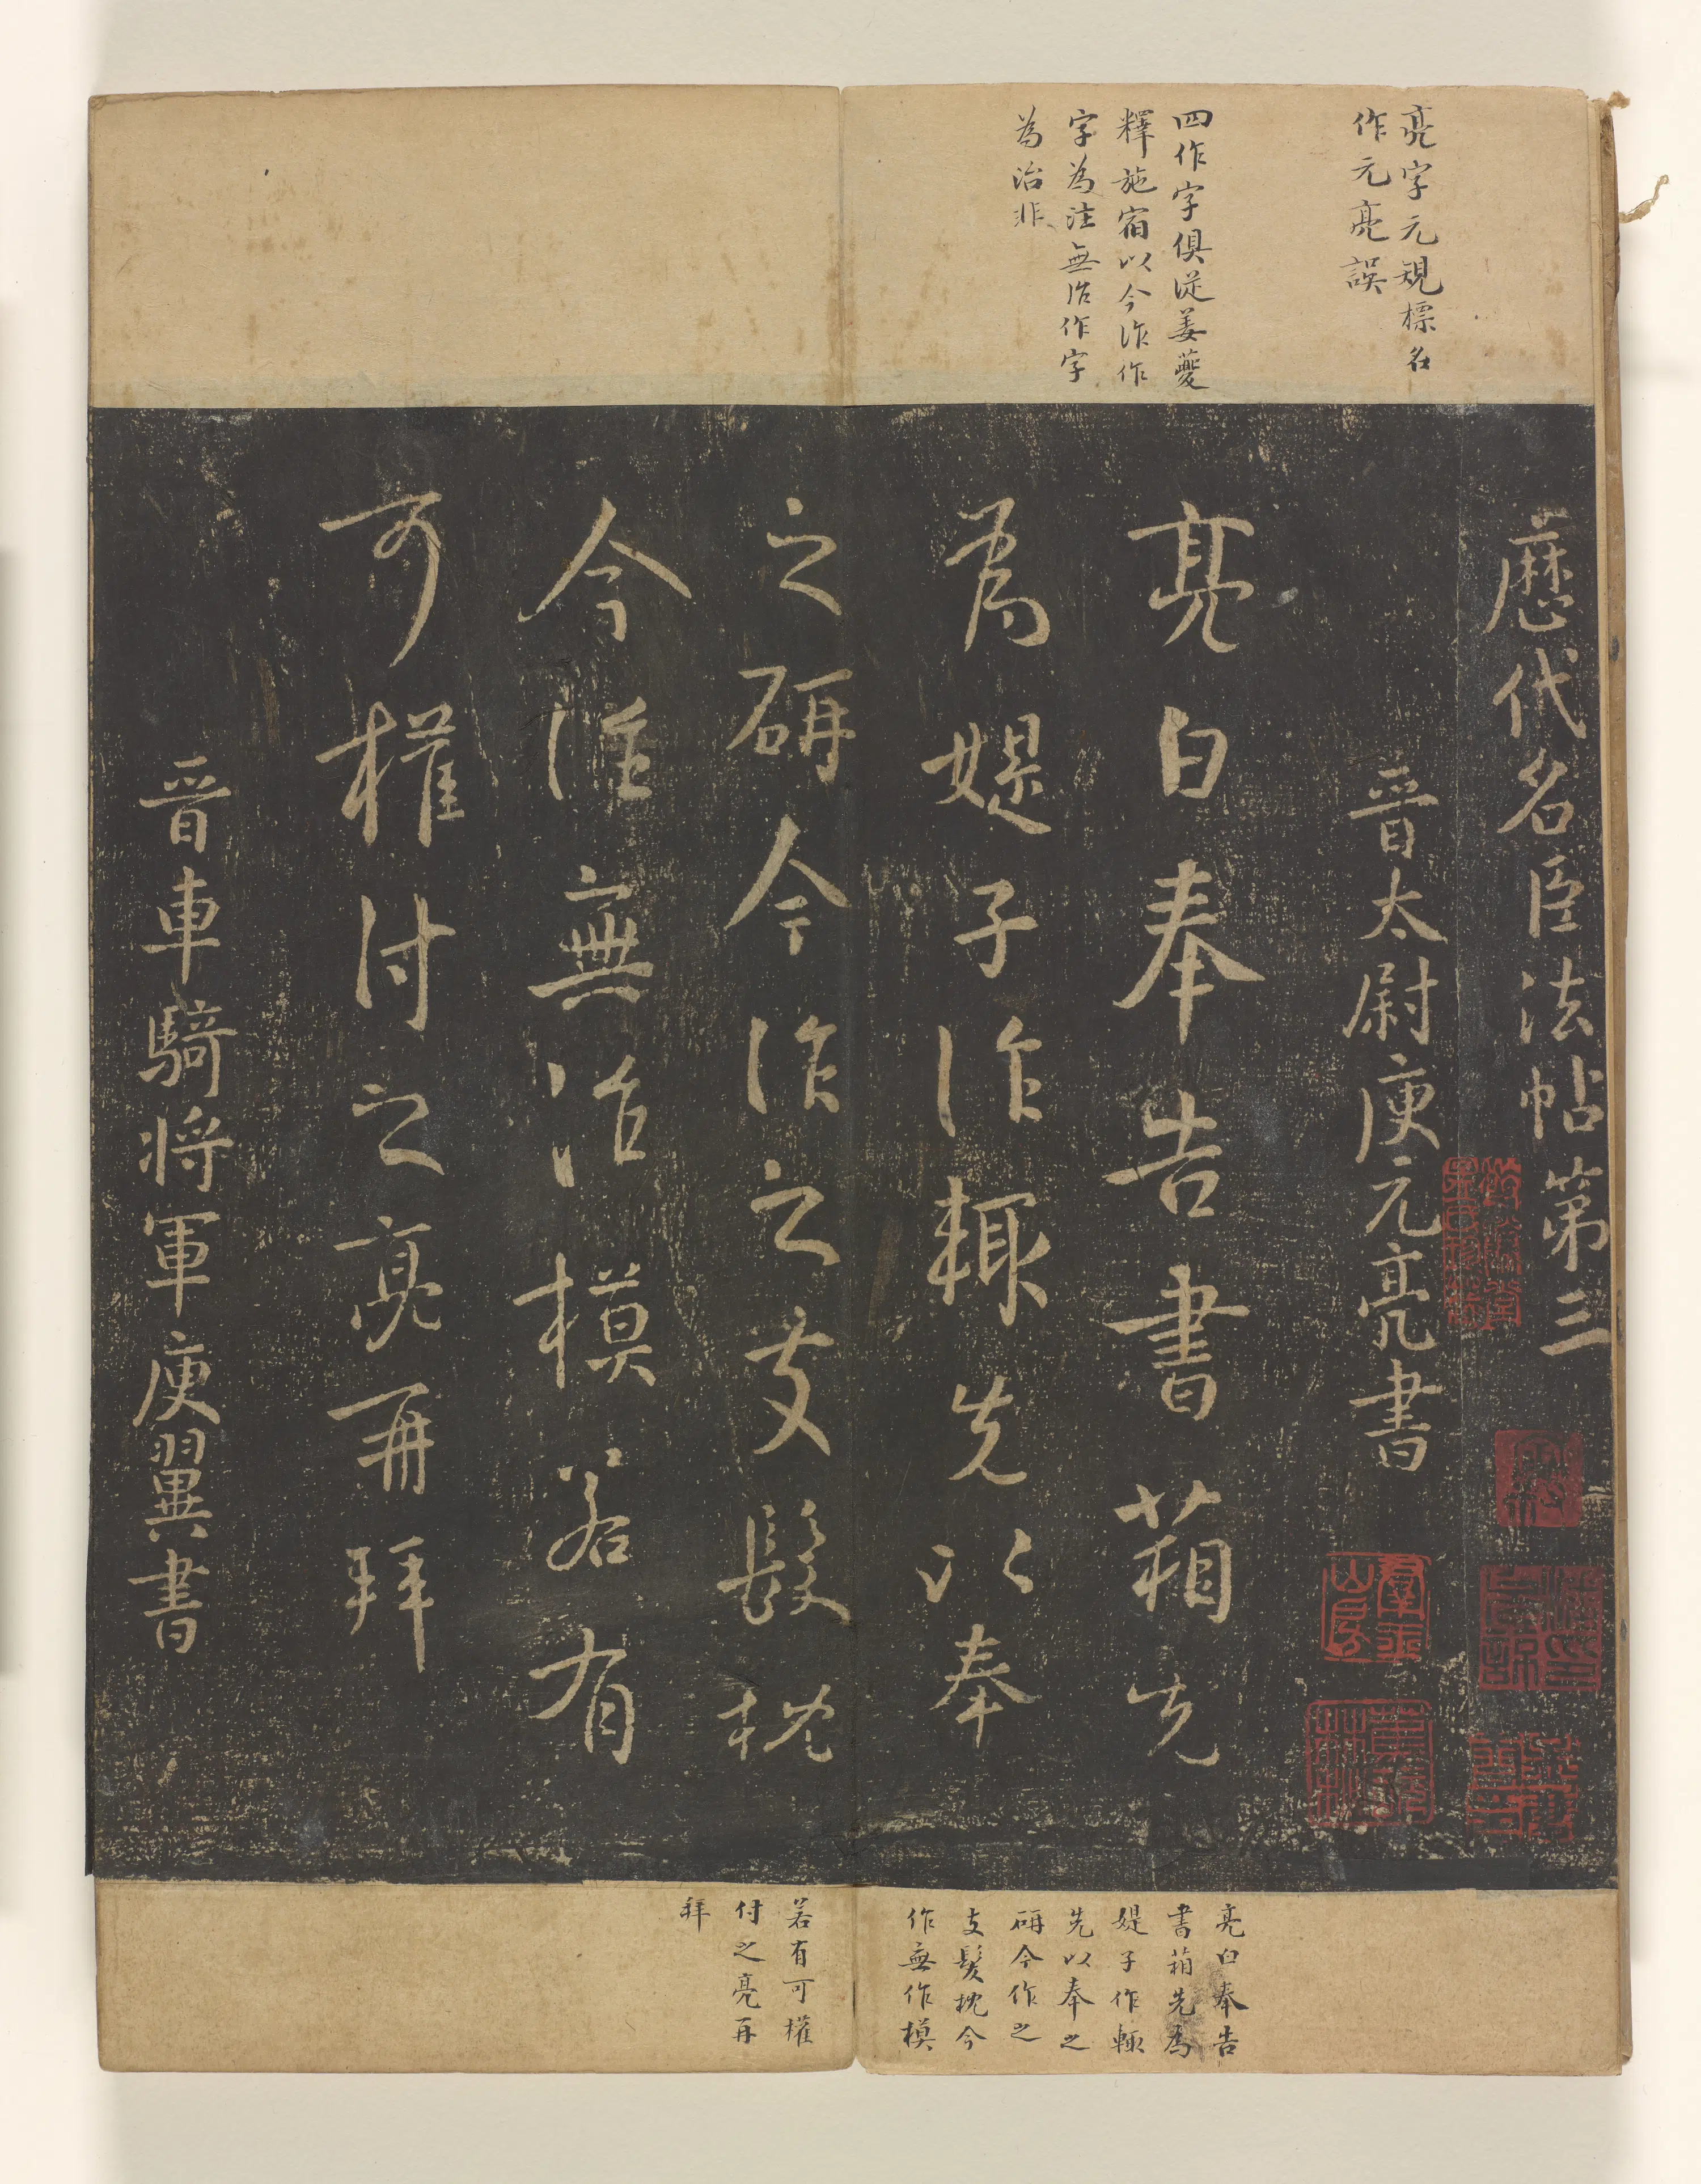 亮字元規標名
作元亮誤
四作字俱從姜夔
釋施宿以今作作
字為注無治作字
為治非
歷代名臣法帖第三
晉太尉庾元亮書
亮白奉告書箱先
為媞子作輒先以奉
之硏今作之支髮枕
今作無作模若有
可權付之亮再拜
晉車騎將軍庾翼書
亮白奉告
書箱先為
媞子作輒
先以奉之
硏今作之
支髮枕今
作無作模
若有可權
付之亮再
拜